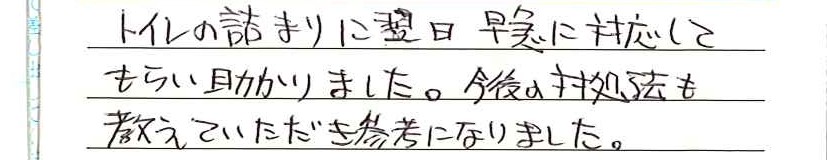 トイレの詰まりに翌日 早急に対応して
もらい助かりました。今後の対処法も
教えていただき参考になりました。